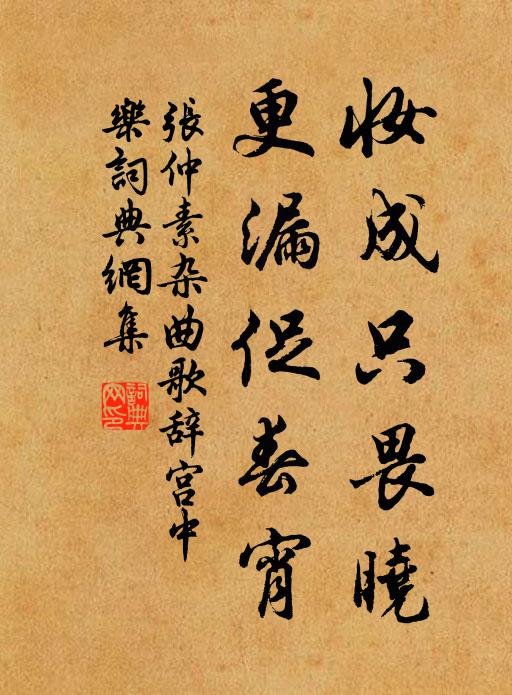 妆成只畏曉
更漏促春宵
張仲素杂曲歌辞宫中
樂詞典網集
詞典网印